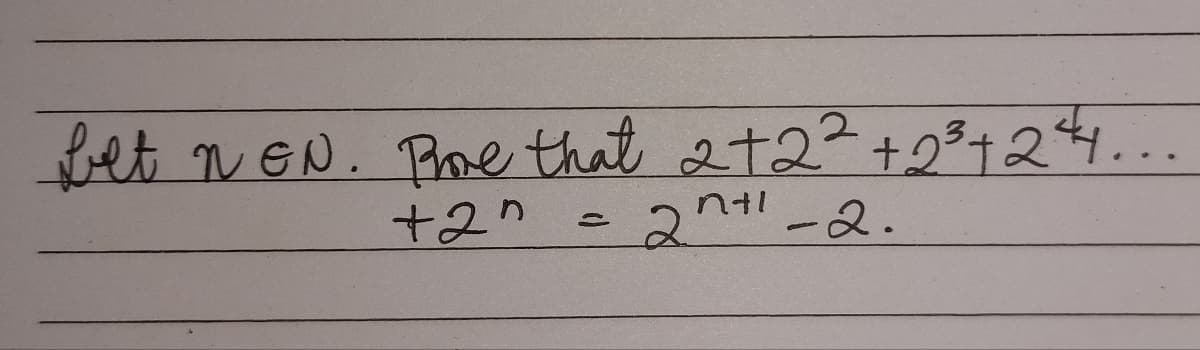 Let n ∈ N. Prove that 2+2² +2³+2⁴...
+2ⁿ = 2ⁿ⁺¹ -2.